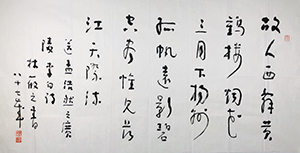 故人西辭黄
鶴樓烟花
三月下揚州
孤帆遠影碧
空盡惟見長
江天際流
送孟浩然之廣
陵李白詩
林散之
八十七